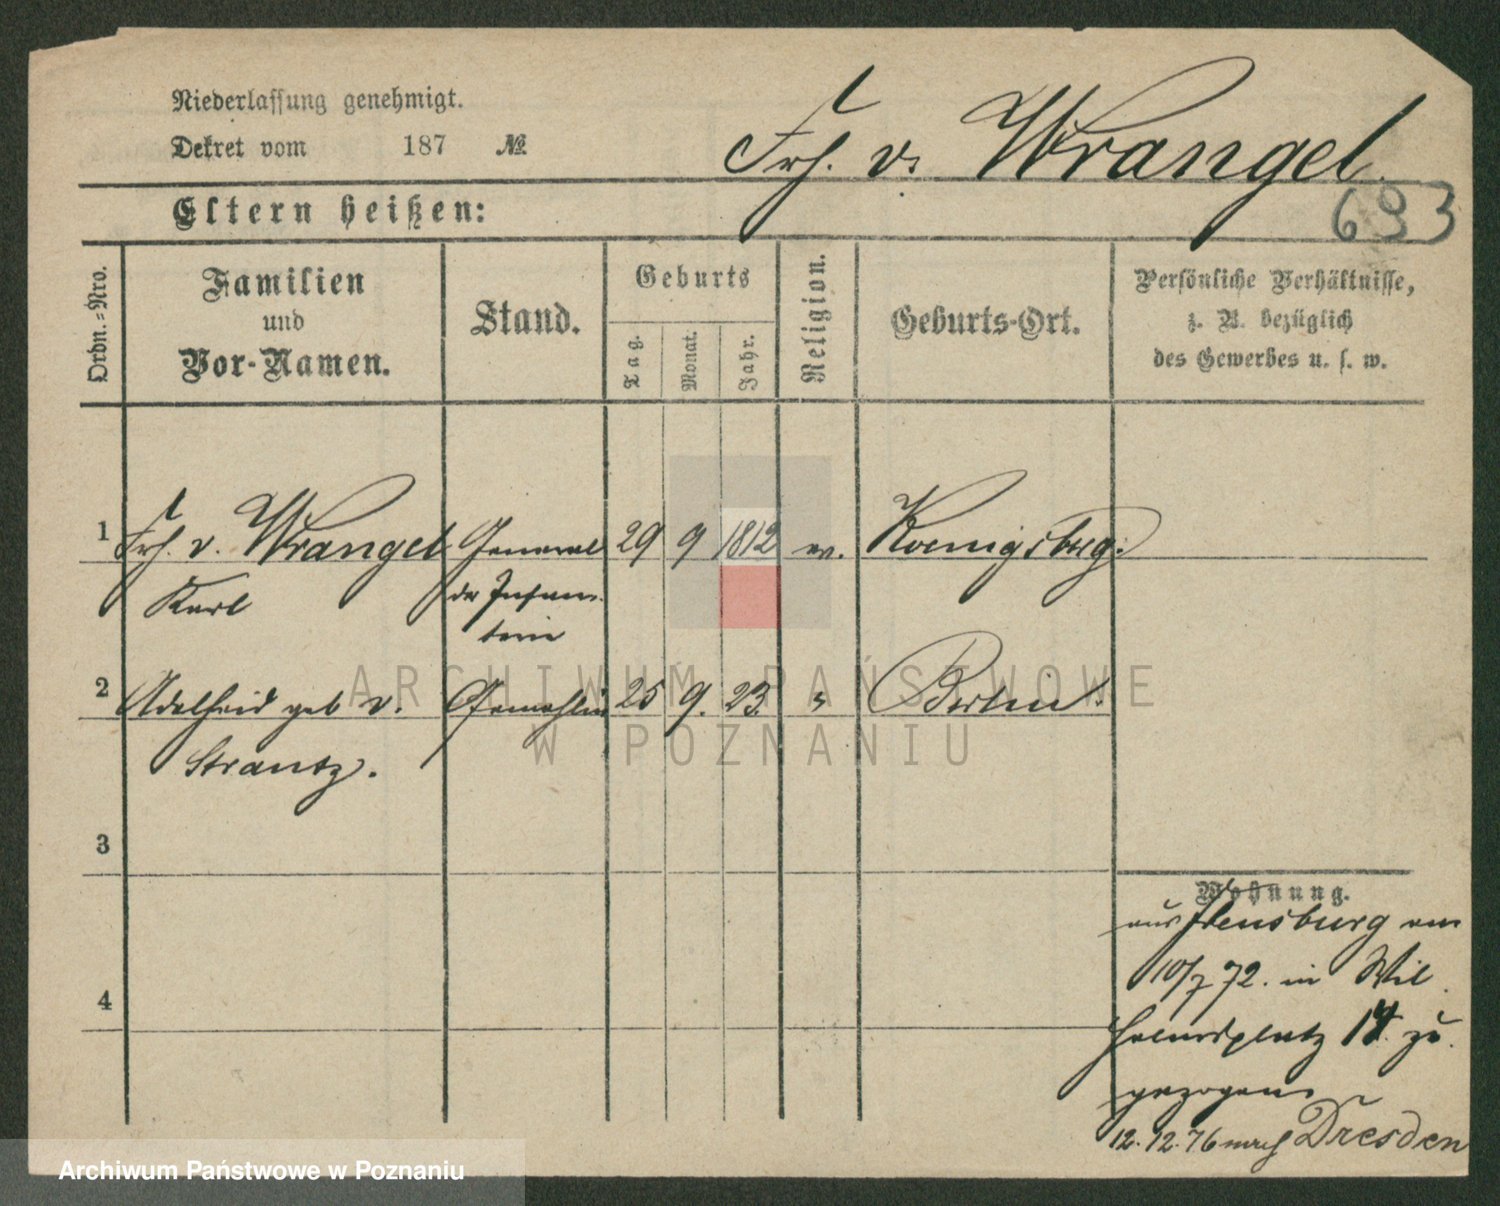 Niederlassung genehmigt.
Dekret vom 187 №
Frh. v. Wrangel
693
Eltern heißen:
Ordn.=Nro.
Familien
und
Vor-Namen.
Stand.
Geburts
Tag.
Monat.
Jahr.
Religion.
Geburts-Ort.
Persönliche Verhältnisse,
z. B. bezüglich
des Gewerbes u. s. w.
1 Frh. v. Wrangel General 29 9 1812 ev. Koenigsberg.
Karl der Infan-
terie
2 Adelheid geb v. Gemahlin 25 9. 23. " Berlin.
Strantz.
3
4
Wohnung.
aus Flensburg am
10/7 72. in Wil
helmsplatz 17. zu
gezogen
12. 12. 76 nach Dresden
ARCHIWUM PAŃSTWOWE
W POZNANIU
Archiwum Państwowe w Poznaniu